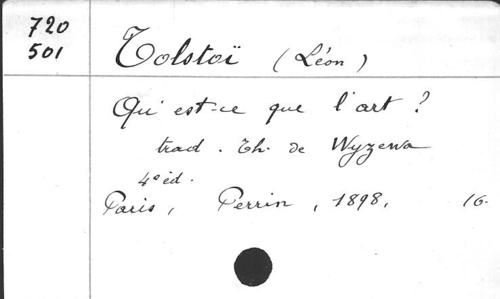 720
501
Tolstoï (Léon)
Qu'est-ce que l'art ?
trad. Th. de Wyzewa
4e éd.
Paris, Perrin, 1898, 16.